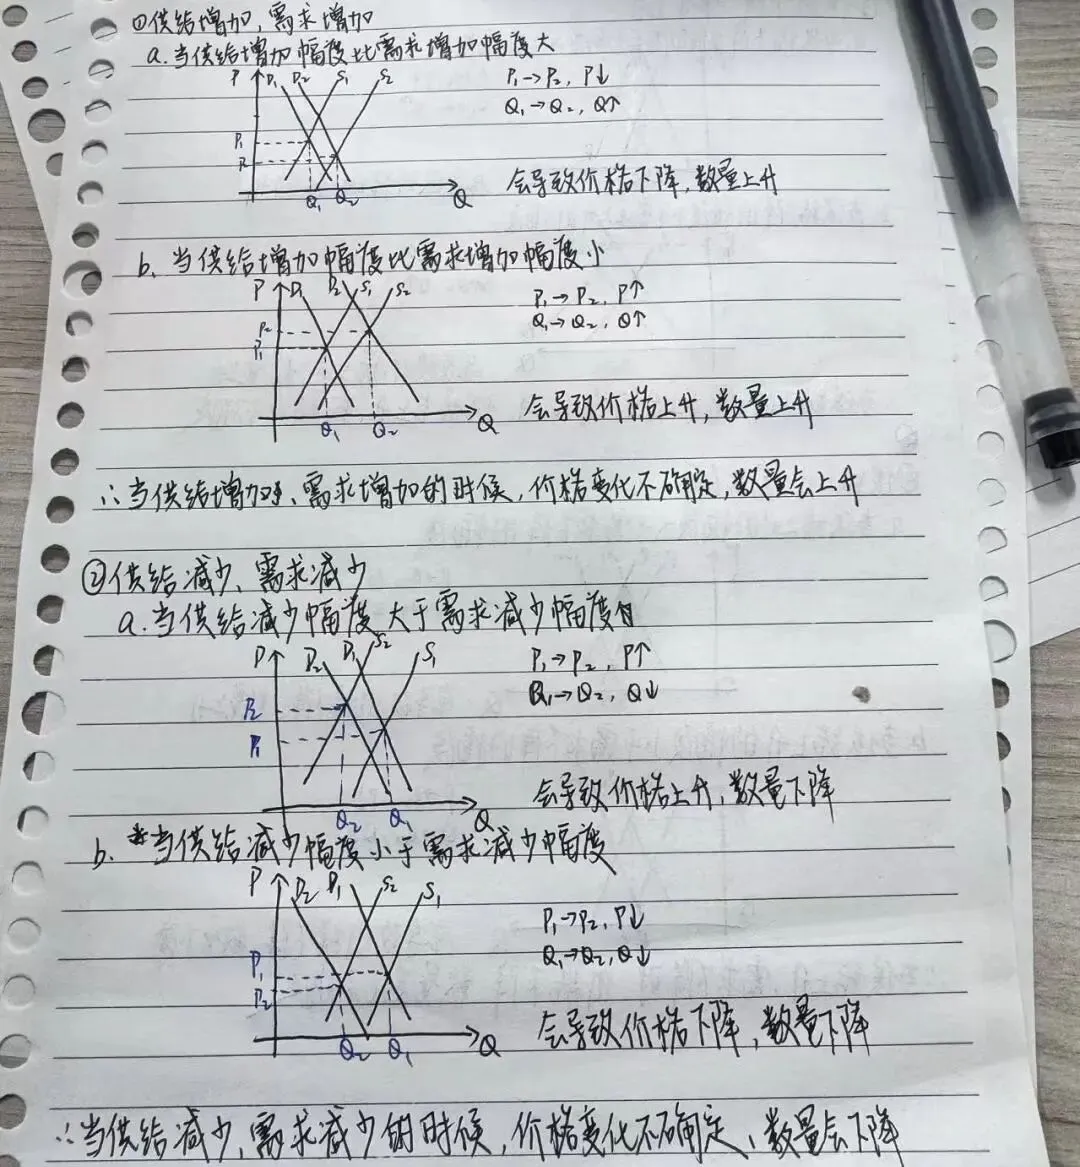 ①供给增加,需求增加
a.当供给增加幅度比需求增加幅度大
P D₁ D₂ S₁ S₂
P₁→P₂, P↓
Q₁→Q₂, Q↑
P₁
P₂
Q₁ Q₂ Q
会导致价格下降,数量上升
b、当供给增加幅度比需求增加幅度小
P D₁ D₂ S₁ S₂
P₁→P₂, P↑
Q₁→Q₂, Q↑
P₂
P₁
Q₁ Q₂ Q
会导致价格上升,数量上升
∴当供给增加、需求增加的时候,价格变化不确定,数量会上升
②供给减少、需求减少
a.当供给减少幅度大于需求减少幅度
P D₂ D₁ S₂ S₁
P₁→P₂, P↑
Q₁→Q₂, Q↓
P₂
P₁
Q₂ Q₁ Q
会导致价格上升,数量下降
b.当供给减少幅度小于需求减少幅度
P D₂ D₁ S₂ S₁
P₁→P₂, P↓
Q₁→Q₂, Q↓
P₁
P₂
Q₂ Q₁ Q
会导致价格下降,数量下降
∴当供给减少,需求减少的时候,价格变化不确定、数量会下降